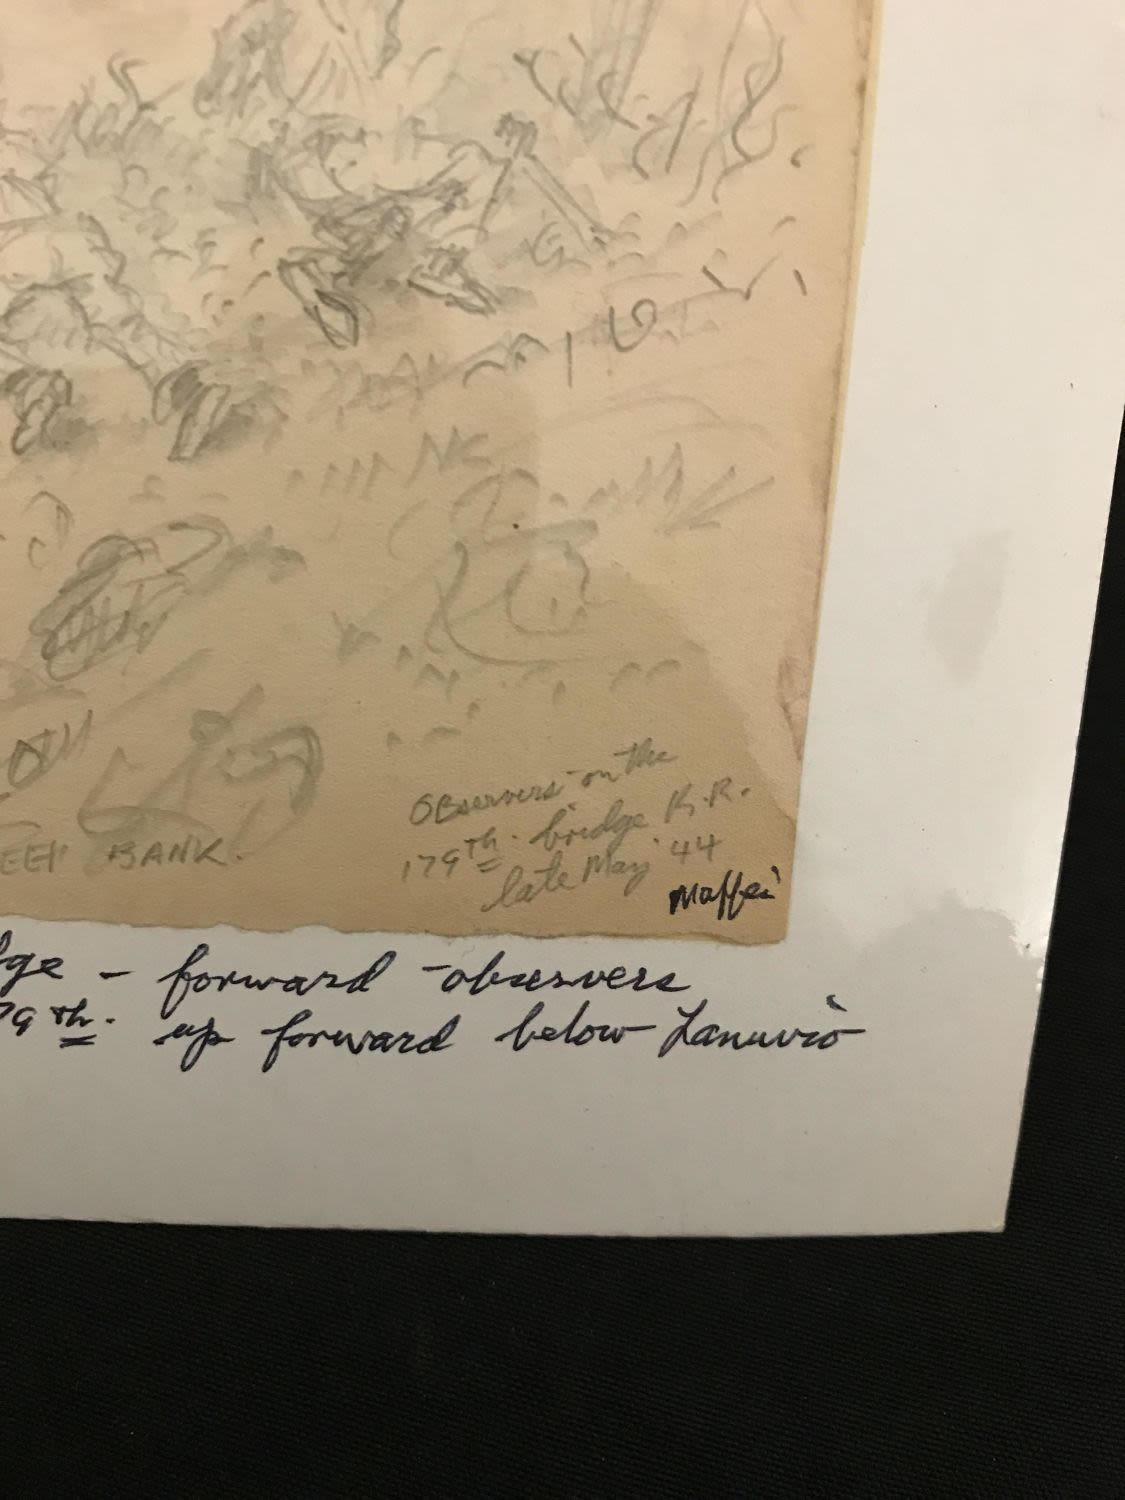 EEP BANK.
Observers on the
179th. bridge R.R.
late May '44
Maffei
dge - forward observers
79th. up forward below Lanuvio